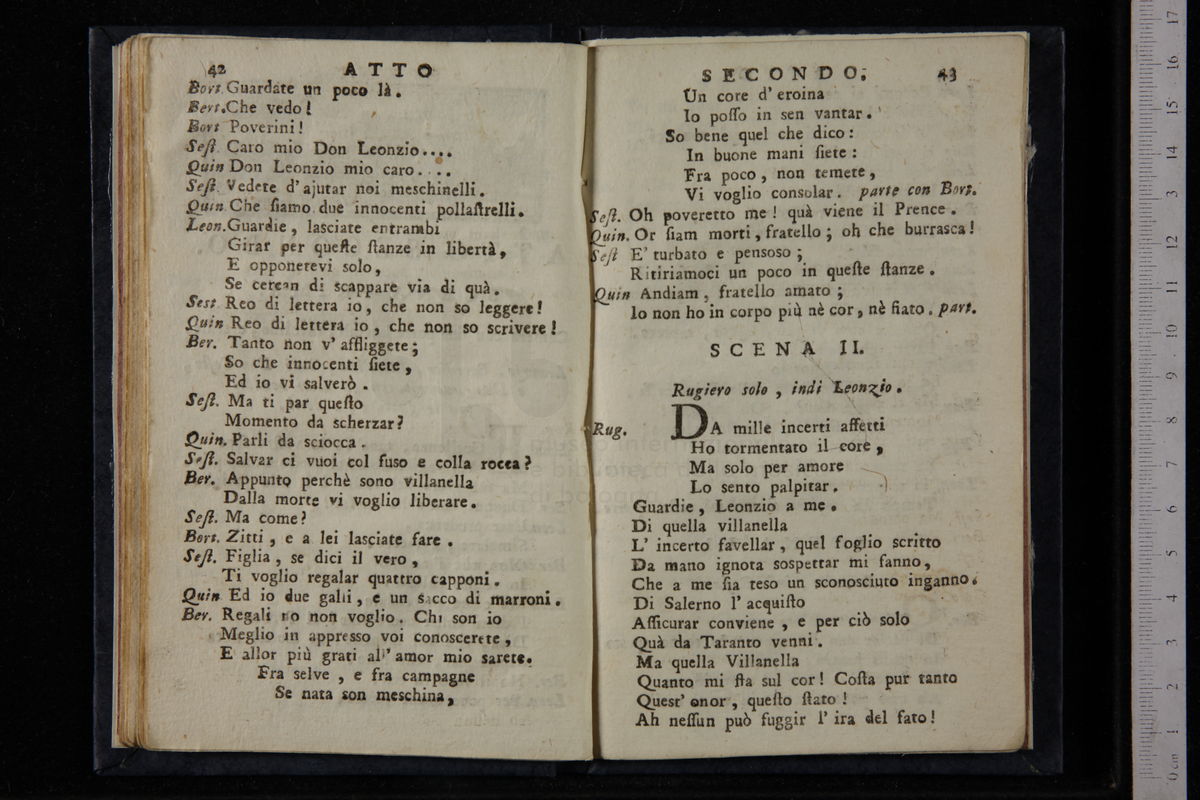 42 ATTO
Bort. Guardate un poco là.
Bert. Che vedo!
Bort Poverini!
Seſt. Caro mio Don Leonzio....
Quin Don Leonzio mio caro....
Seſt. Vedete d'ajutar noi meschinelli.
Quin Che ſiamo due innocenti pollaſtrelli.
Leon. Guardie, laſciate entrambi
Girar per queſte ſtanze in libertà,
E opponetevi solo,
Se cercan di scappare via di quà.
Sest Reo di lettera io, che non so leggere!
Quin Reo di lettera io, che non so scrivere!
Ber. Tanto non v'affliggete;
So che innocenti ſiete,
Ed io vi salverò.
Seſt. Ma ti par queſto
Momento da scherzar?
Quin. Parli da sciocca.
Seſt. Salvar ci vuoi col fuso e colla rocca?
Ber. Appunto perchè sono villanella
Dalla morte vi voglio liberare.
Seſt. Ma come?
Bort. Zitti, e a lei laſciate fare.
Seſt. Figlia, se dici il vero,
Ti voglio regalar quattro capponi.
Quin Ed io due galli, e un sacco di marroni.
Ber. Regali no non voglio. Chi son io
Meglio in appresso voi conoscerete,
E allor più grati all'amor mio sarete.
Fra selve, e fra campagne
Se nata son meschina,
SECONDO. 43
Un core d'eroina
Io poſſo in sen vantar.
So bene quel che dico:
In buone mani ſiete:
Fra poco, non temete,
Vi voglio consolar. parte con Bort.
Seſt. Oh poveretto me! quà viene il Prence.
Quin. Or ſiam morti, fratello; oh che burrasca!
Seſt E' turbato e pensoso;
Ritiriamoci un poco in queſte ſtanze.
Quin Andiam, fratello amato;
Io non ho in corpo più nè cor, nè fiato. part.
SCENA II.
Rugiero solo, indi Leonzio.
Rug. DA mille incerti affetti
Ho tormentato il core,
Ma solo per amore
Lo sento palpitar.
Guardie, Leonzio a me.
Di quella villanella
L'incerto favellar, quel foglio scritto
Da mano ignota sospettar mi fanno,
Che a me ſia teso un sconosciuto inganno.
Di Salerno l'acquiſto
Aſſicurar conviene, e per ciò solo
Quà da Taranto venni.
Ma quella Villanella
Quanto mi ſta sul cor! Coſta pur tanto
Quest'onor, queſto ſtato!
Ah neſſun può fuggir l'ira del fato!
17
16
15
14
13
12
11
10
9
8
7
6
5
4
3
2
1
0 cm